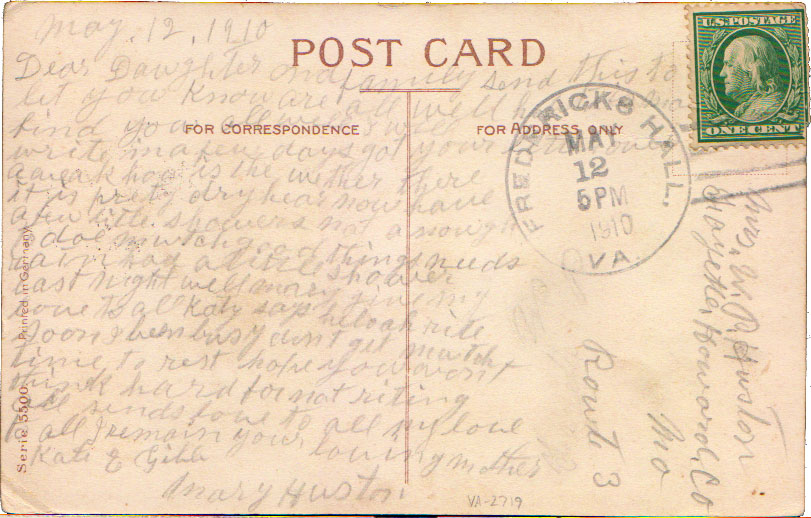 May. 12, 1910
POST CARD
U.S. POSTAGE
ONE CENT
FOR CORRESPONDENCE
FOR ADDRESS ONLY
FREDERICKS HALL,
MAY
12
5PM
1910
VA.
Dear Daughter and family send this to
let you know are all well
find you all well
write in a few days got your
a week how is the wether there
it is pretty dry hear now have
a few little showers not a nough
do mutch good things needs
rain hag a little shower
last night well
love to all Katy says
soon ben busy dont get mutch
time to rest hope you wont
think hard for not riting
all sends love to all my love
to all I remain your loving mother
Kate &
Mary Huston
Mrs. W. R Huston
Fayette, Howard, Co
Mo
Route 3
Serie 5500 Printed in Germany
VA-2719